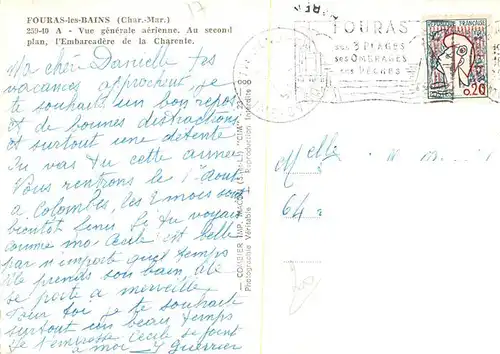 17
FOURAS-les-BAINS (Char.-Mar.)
259-40 A - Vue générale aérienne. Au second
plan, l'Embarcadère de la Charente.
Ma chère Danielle tes
vacances approchent, je
te souhaite un bon repos
et de bonnes distractions
et surtout une détente
Tu vas tu cette année
Nous rentrons le 1er Août
à Colombes, les 2 mois sont
bientôt finis. Si tu voyais
comme ma Cécile est belle
par n'importe quel temps
elle prends son bain, elle
se porte à merveille
Pour toi je te souhaite
surtout un beau temps
je t'embrasse Cécile se joint
à moi Y Guerrier
— COMBIER IMP. MACON (S.-&-L.) "CIM"
Photographie Véritable - Reproduction Interdite
FOURAS
SES 3 PLAGES
SES OMBRAGES
SES PÊCHES
REPUBLIQUE FRANÇAISE
0,20
Melle
64